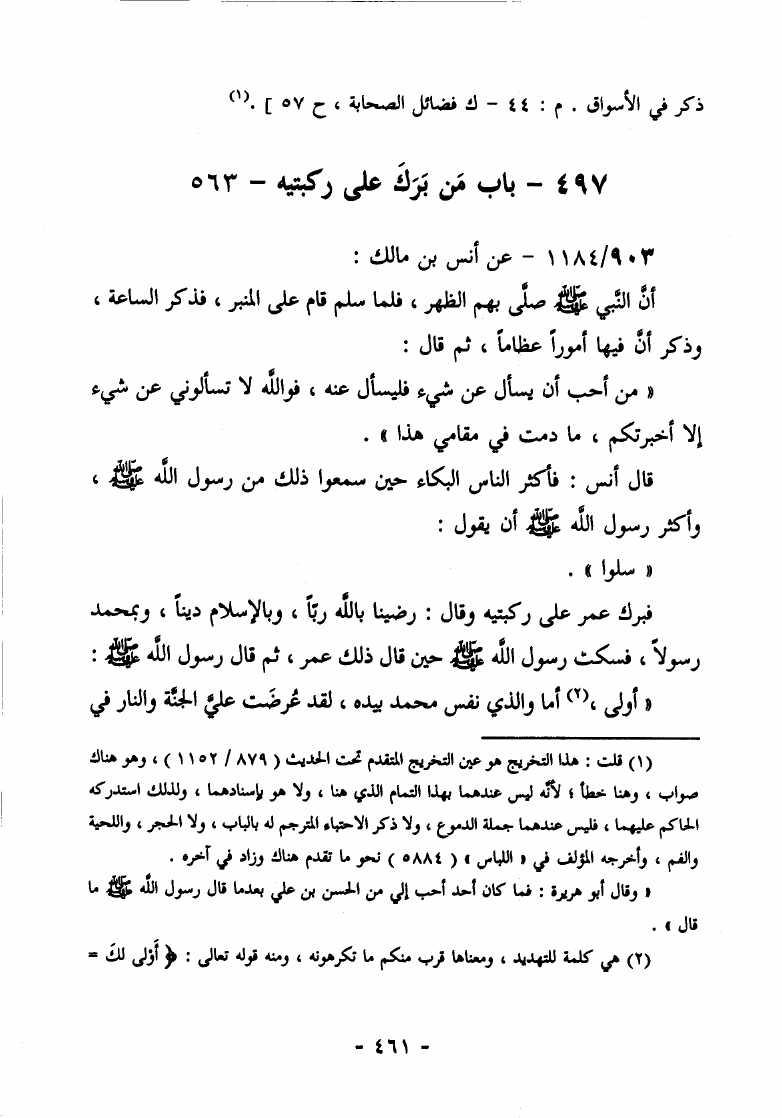 ذكر في الأسواق . م : ٤٤ – ك فضائل الصحابة ، ح ٥٧ ] .(١)
٤٩٧ – باب مَن بَرَكَ على ركبتيه – ٥٦٣
١١٨٤/٩٠٣ – عن أنس بن مالك :
أنَّ النَّبي ﷺ صلَّى بهم الظهر ، فلما سلم قام على المنبر ، فذكر الساعة ،
وذكر أنَّ فيها أموراً عظاماً ، ثم قال :
« من أحب أن يسأل عن شيء فليسأل عنه ، فواللَّه لا تسألوني عن شيء
إلا أخبرتكم ، ما دمت في مقامي هذا » .
قال أنس : فأكثر الناس البكاء حين سمعوا ذلك من رسول اللَّه ﷺ ،
وأكثر رسول اللَّه ﷺ أن يقول :
« سلوا » .
فبرك عمر على ركبتيه وقال : رضينا باللَّه ربّاً ، وبالإسلام ديناً ، وبمحمد
رسولاً ، فسكت رسول اللَّه ﷺ حين قال ذلك عمر ، ثم قال رسول اللَّه ﷺ :
« أولى ،(٢) أما والذي نفس محمد بيده ، لقد عُرضَت عليَّ الجنَّة والنار في
(١) قلت : هذا التخريج هو عين التخريج المتقدم تحت الحديث ( ٨٧٩ / ١١٥٢ ) ، وهو هناك
صواب ، وهنا خطأ ؛ لأنَّه ليس عندهما بهذا التمام الذي هنا ، ولا هو بإسنادهما ، ولذلك استدركه
الحاكم عليهما ، فليس عندهما جملة الدموع ، ولا ذكر الاحتباء المترجم له بالباب ، ولا الحجر ، واللحية
والفم ، وأخرجه المؤلف في « اللباس » ( ٥٨٨٤ ) نحو ما تقدم هناك وزاد في آخره .
« وقال أبو هريرة : فما كان أحد أحب إلي من الحسن بن علي بعدما قال رسول اللَّه ﷺ ما
قال » .
(٢) هي كلمة للتهديد ، ومعناها قرب منكم ما تكرهونه ، ومنه قوله تعالى : ﴿ أَوْلى لكَ =
- ٤٦١ -